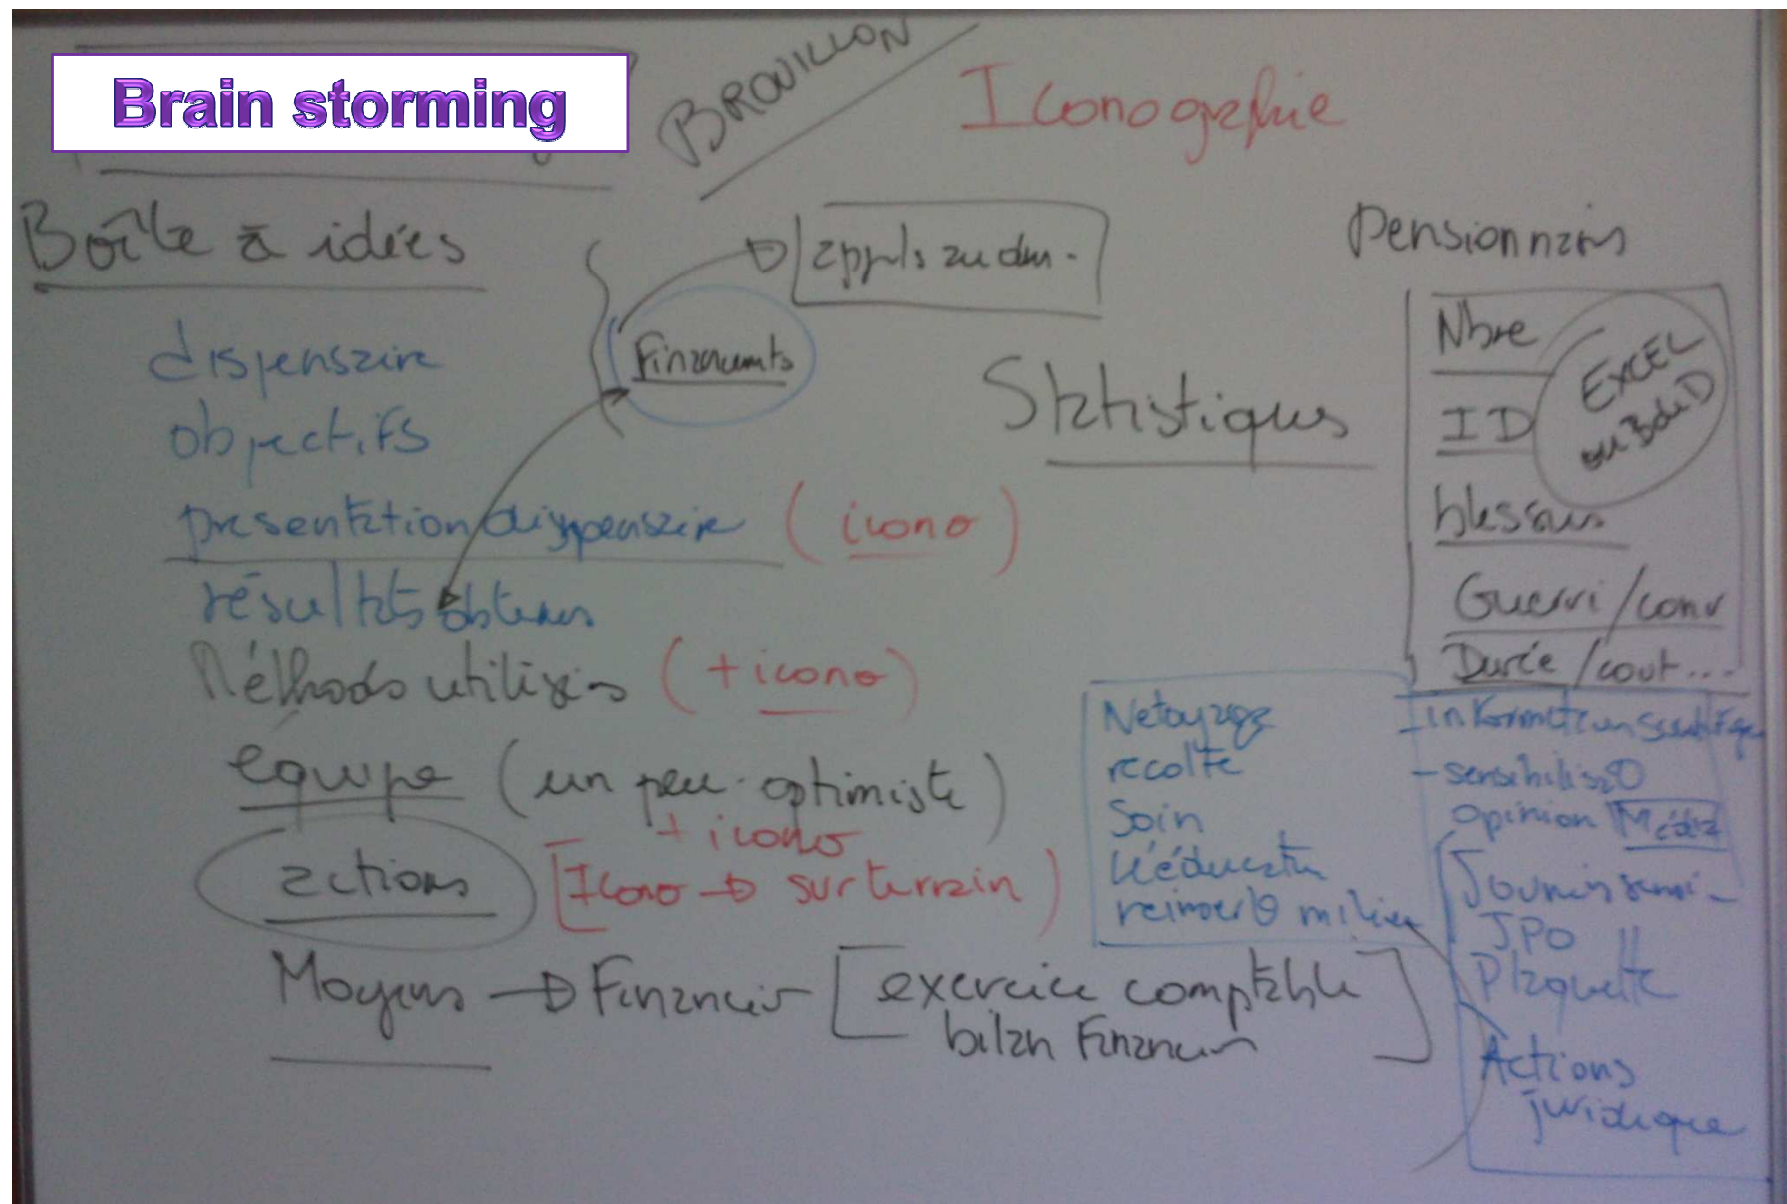 Brain storming
BROUILLON
Iconographie
Boîte à idées
appels au don.
Financements
dispensaire
objectifs
presentation dispensaire (icono)
résultats obtenus
Méthodes utilisées (+ icono)
équipe (un peu optimiste)
+ icono
actions [Icono → sur terrain)
Moyens → Financier [exercice comptable
bilan Financier]
Statistiques
Pensionnaires
Nbre
ID
EXCEL
ou B de D
blessures
Gueri/conv
Durée/cout...
Netoyage
recolte
Soin
Rééducation
milieu
- information scientifique
- sensibilis
opinion Média
JPO "
Plaquette
Actions
juridique